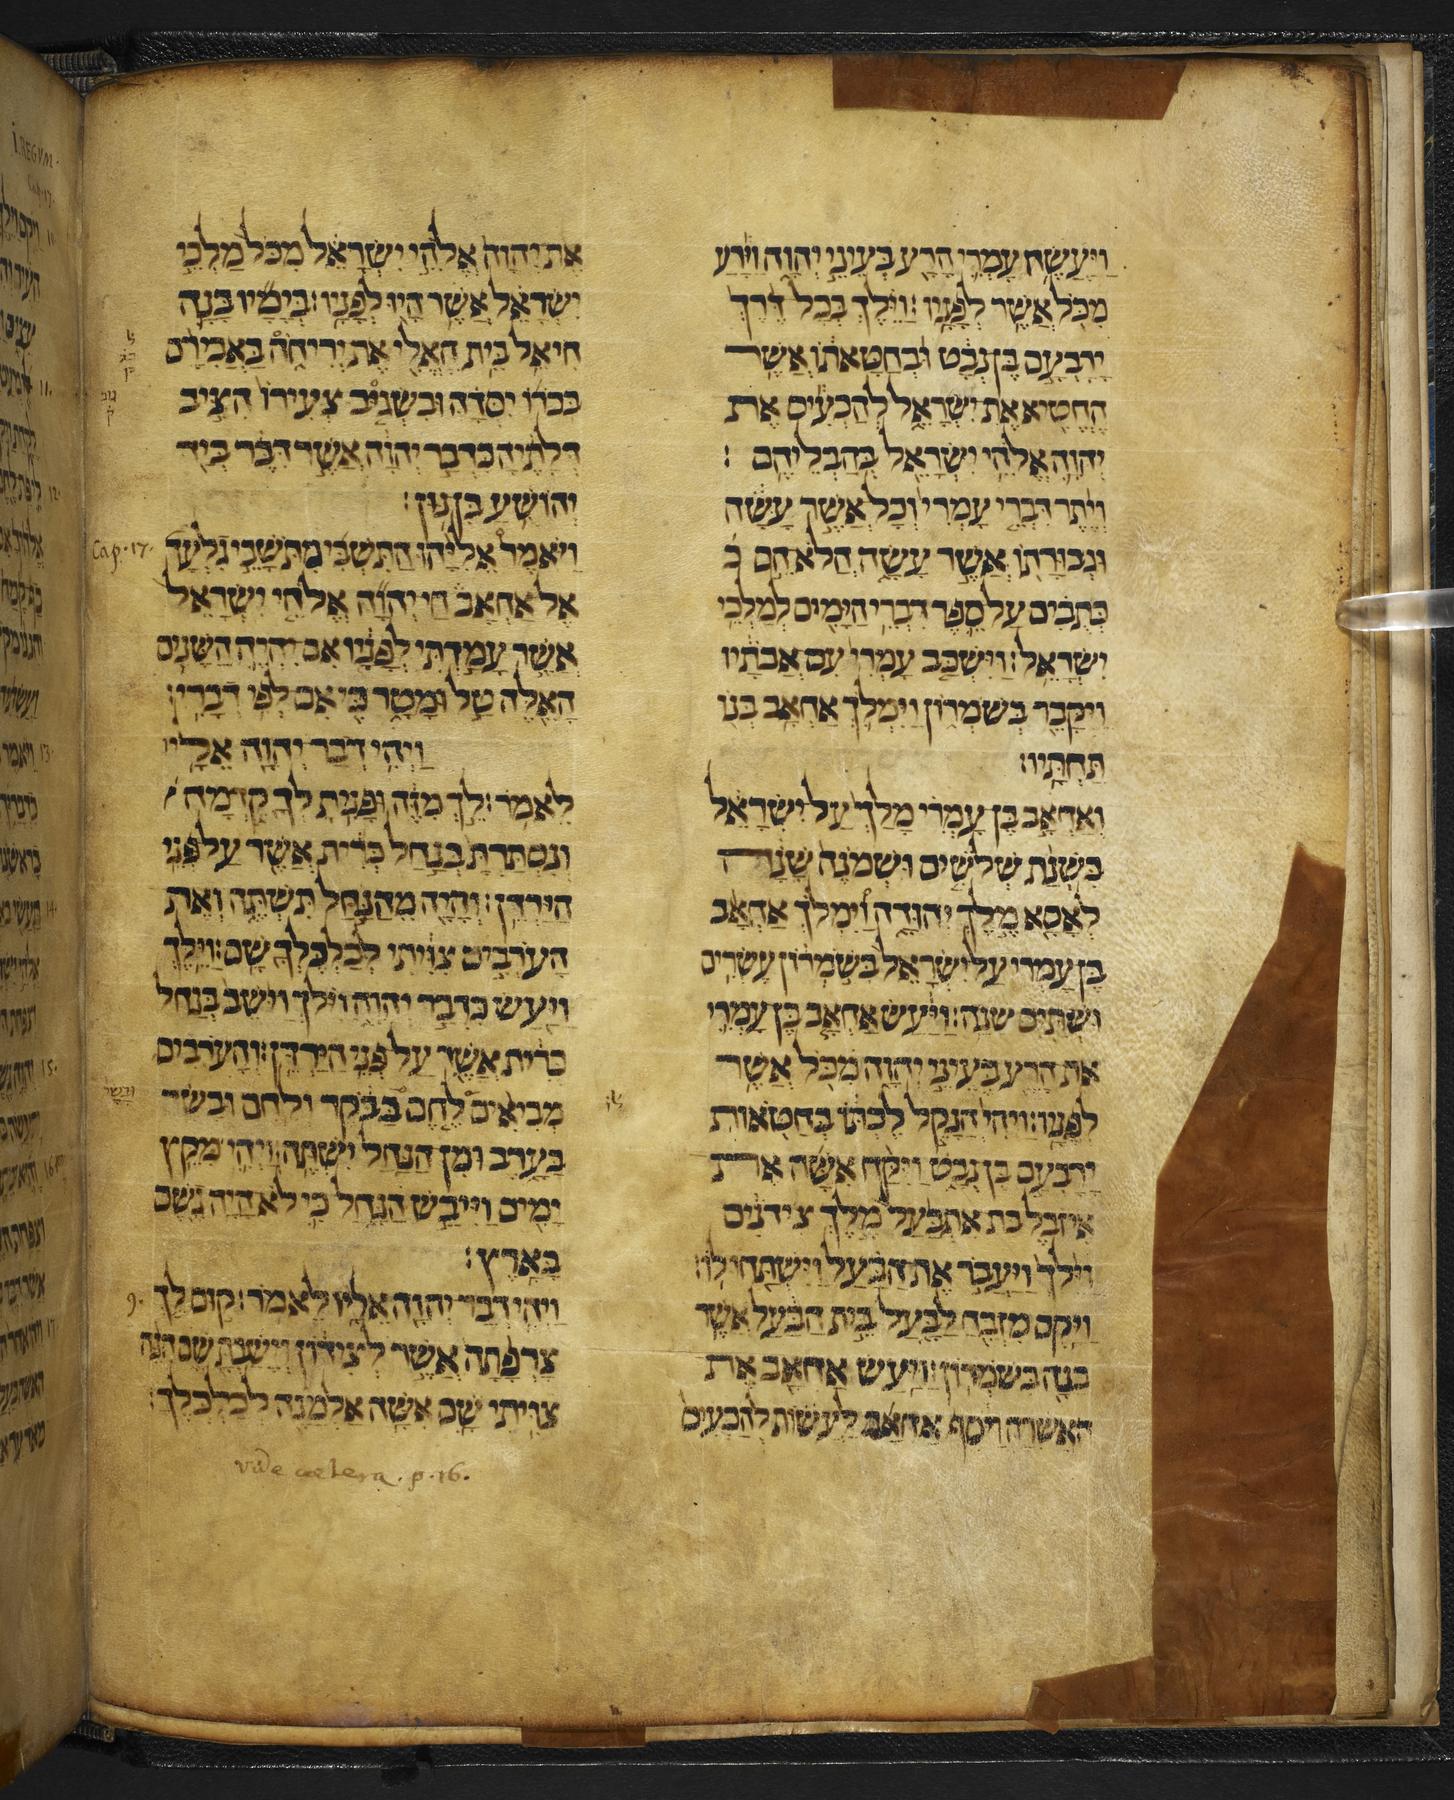 ויעשה עמרי הרע בעיני יהוה וירע
מכל אשר לפניו׃ וילך בכל דרך
ירבעם בן נבט ובחטאתו אשר
החטיא את ישראל להכעיס את
יהוה אלהי ישראל בהבליהם׃
ויתר דברי עמרי וכל אשר עשה
וגבורתו אשר עשה הלא הם
כתבים על ספר דברי הימים למלכי
ישראל׃ וישכב עמרי עם אבתיו
ויקבר בשמרון וימלך אחאב בנו
תחתיו׃
ואחאב בן עמרי מלך על ישראל
בשנת שלשים ושמנה שנה
לאסא מלך יהודה וימלך אחאב
בן עמרי על ישראל בשמרון עשרים
ושתים שנה׃ ויעש אחאב בן עמרי
את הרע בעיני יהוה מכל אשר
לפניו׃ ויהי הנקל לכתו בחטאות
ירבעם בן נבט ויקח אשה את
איזבל בת אתבעל מלך צידנים
וילך ויעבד את הבעל וישתחו לו׃
ויקם מזבח לבעל בית הבעל אשר
בנה בשמרון׃ ויעש אחאב את
האשרה ויסף אחאב לעשות להכעיס
את יהוה אלהי ישראל מכל מלכי
ישראל אשר היו לפניו׃ בימיו בנה
חיאל בית האלי את יריחה באבירם
בכרו יסדה ובשגיב צעירו הציב
דלתיה כדבר יהוה אשר דבר ביד
יהושע בן נון׃
Cap. 17.
ויאמר אליהו התשבי מתשבי גלעד
אל אחאב חי יהוה אלהי ישראל
אשר עמדתי לפניו אם יהיה השנים
האלה טל ומטר כי אם לפי דברי׃
ויהי דבר יהוה אליו
לאמר׃ לך מזה ופנית לך קדמה
ונסתרת בנחל כרית אשר על פני
הירדן׃ והיה מהנחל תשתה ואת
הערבים צויתי לכלכלך שם׃ וילך
ויעש כדבר יהוה וילך וישב בנחל
כרית אשר על פני הירדן׃ והערבים
מביאים לחם בבקר ולחם ובשר
בערב ומן הנחל ישתה׃ ויהי מקץ
ימים וייבש הנחל כי לא היה גשם
בארץ׃
9.
ויהי דבר יהוה אליו לאמר׃ קום לך
צרפתה אשר לצידון וישבת שם הנה
צויתי שם אשה אלמנה לכלכלך׃
vide cætera. p. 16.
I. REGVM.
Cap. 17.
11.
12.
13.
14.
15.
16.
17.